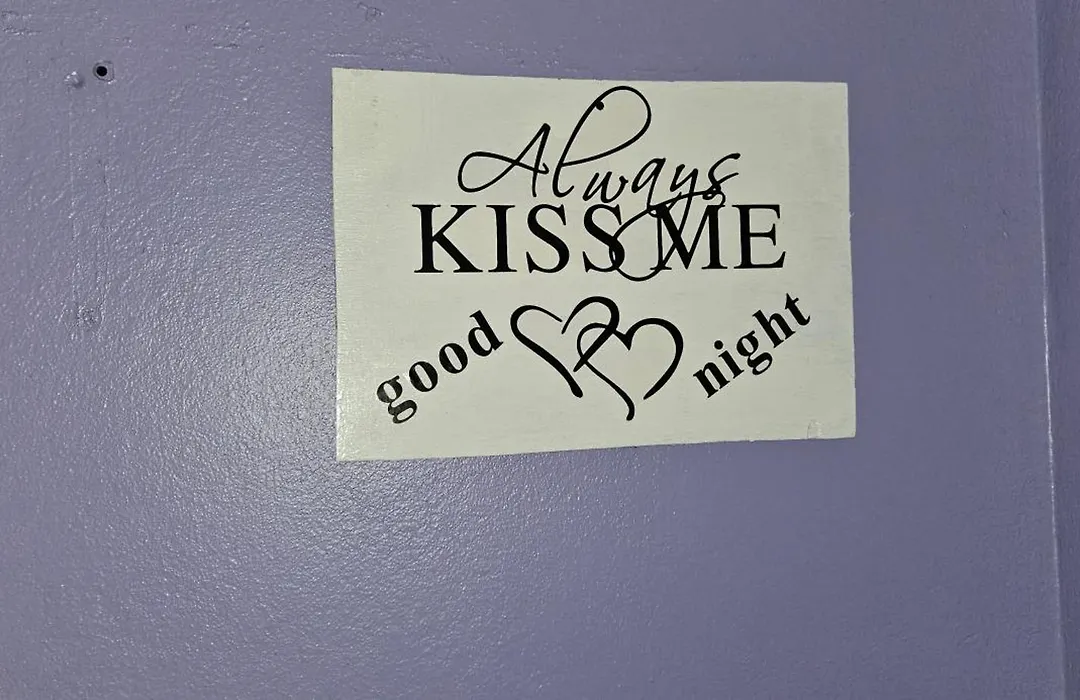 Always
KISS ME
good night